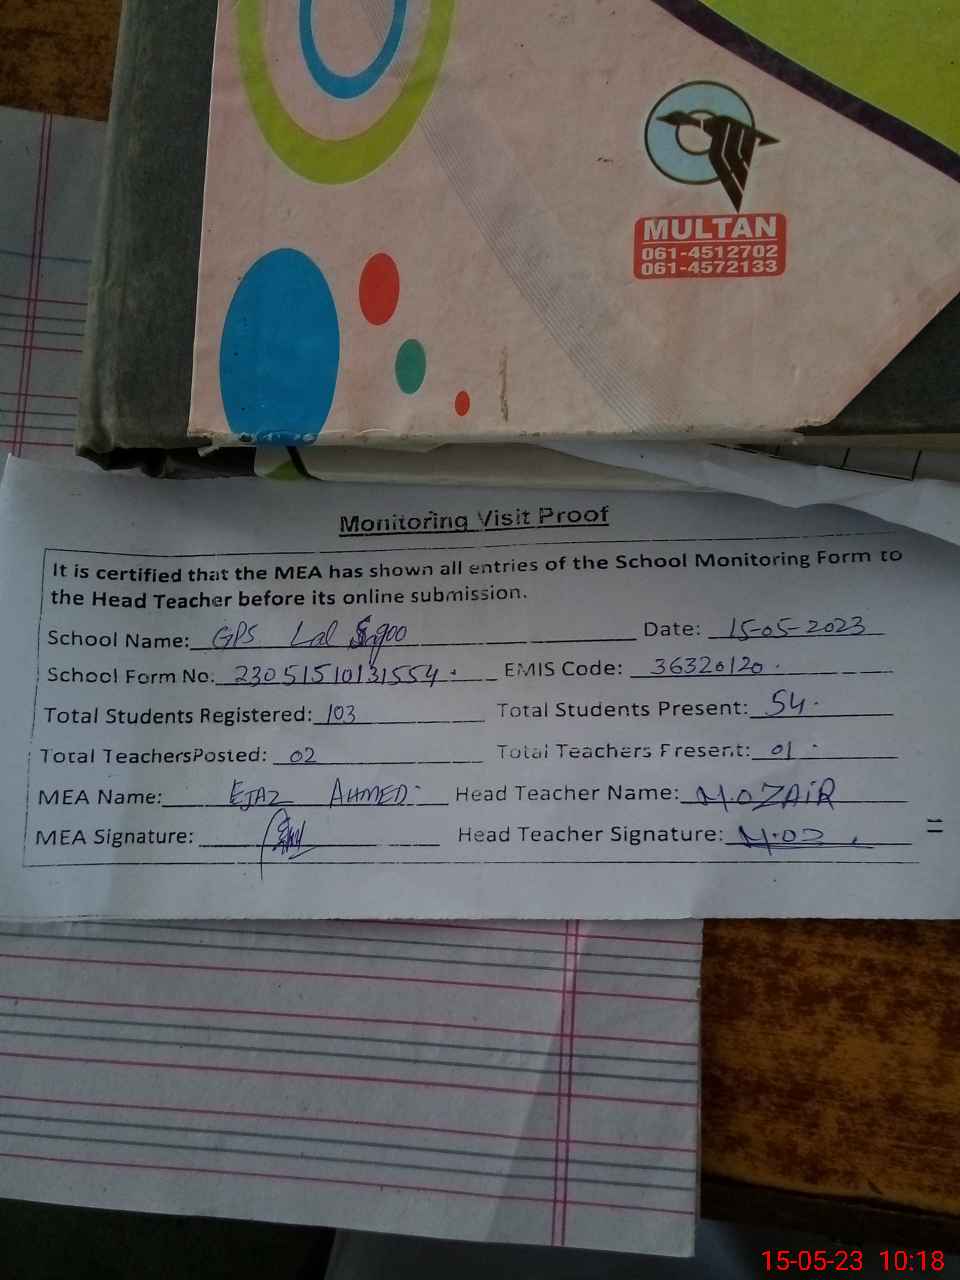 MULTAN
061-4512702
061-4572133
Monitoring Visit Proof
It is certified that the MEA has shown all entries of the School Monitoring Form to
the Head Teacher before its online submission.
School Name: GPS Lal Date: 15-05-2023
School Form No: 23051510131554. EMIS Code: 36320120.
Total Students Registered: 103 Total Students Present: 54.
Total TeachersPosted: 02 Total Teachers Present: 01.
MEA Name: EJAZ AHMED Head Teacher Name: M.OZAIR
MEA Signature: Head Teacher Signature: M.OZ
15-05-23 10:18